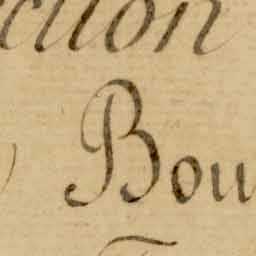 ction
Bou